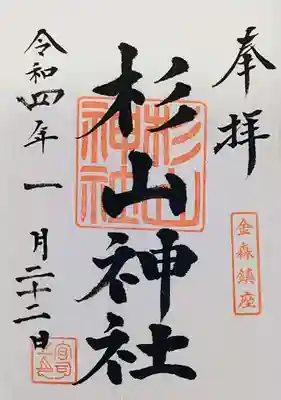 奉拝
金森鎮座
杉山神社
杉山神社
令和四年一月二十二日